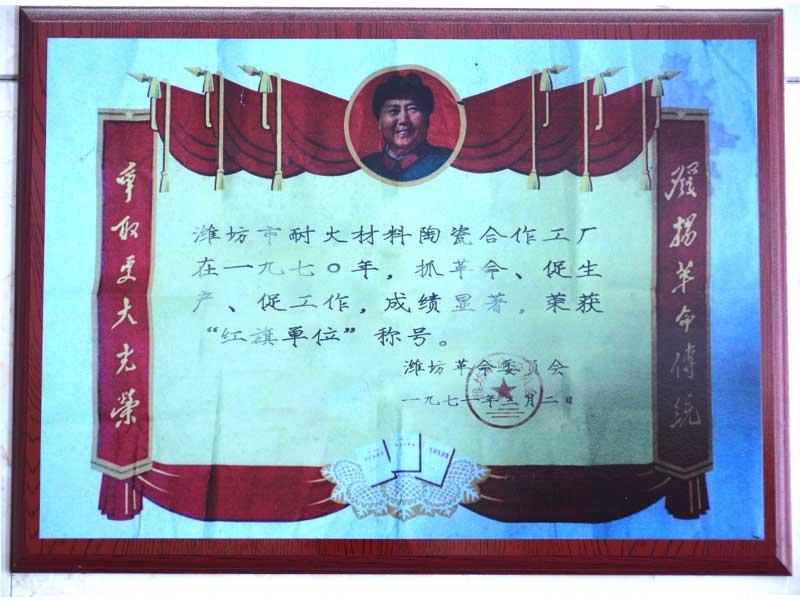 發揚革命傳統
爭取更大光榮
潍坊市耐火材料陶瓷合作工厂
在一九七〇年，抓革命、促生
产、促工作，成绩显著，荣获
“红旗单位”称号。
潍坊革命委员会
一九七一年三月二日